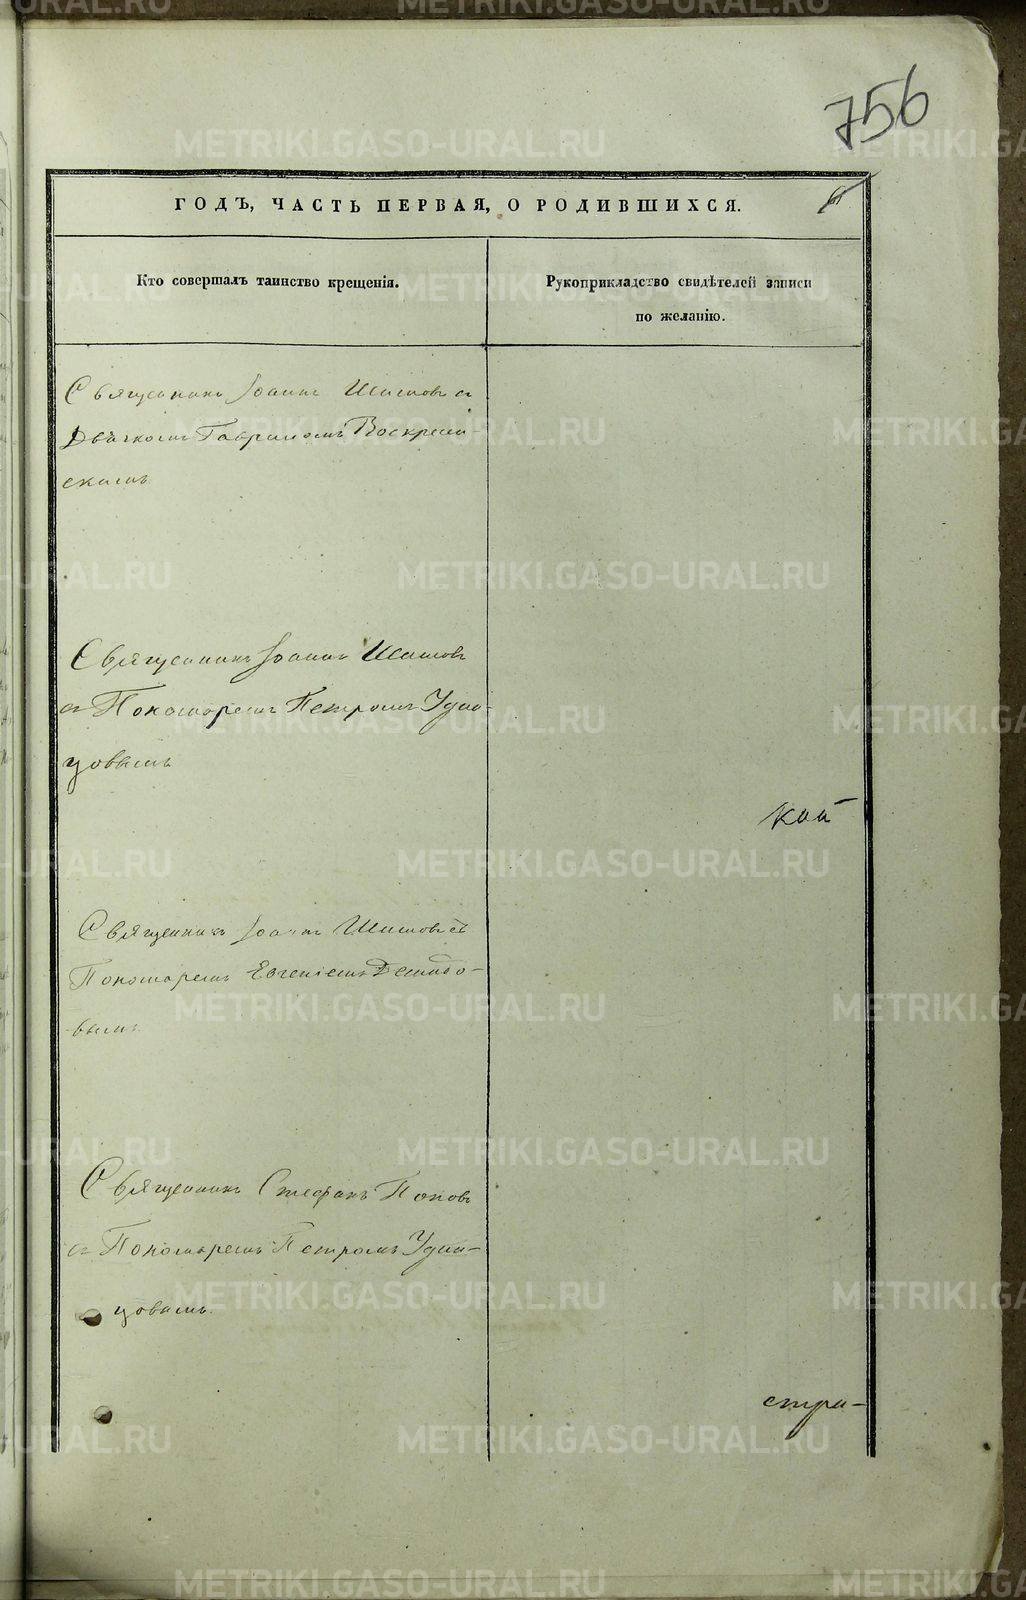 756
ГОДЪ, ЧАСТЬ ПЕРВАЯ, О РОДИВШИХСЯ.
Кто совершалъ таинство крещенія.
Рукоприкладство свидѣтелей записи
по желанію.
Священникъ Іоаннъ Шишовъ съ
Дьячкомъ Гавриломъ Воскресен-
скимъ
Священникъ Іоаннъ Шишовъ
съ Пономаремъ Петромъ Удин-
цовымъ
кой
Священникъ Іоаннъ Шишовъ съ
Пономаремъ Евгеніемъ Демидо-
вымъ
Священникъ Стефанъ Поповъ
съ Пономаремъ Петромъ Удин-
цовымъ.
стра-
METRIKI.GASO-URAL.RU